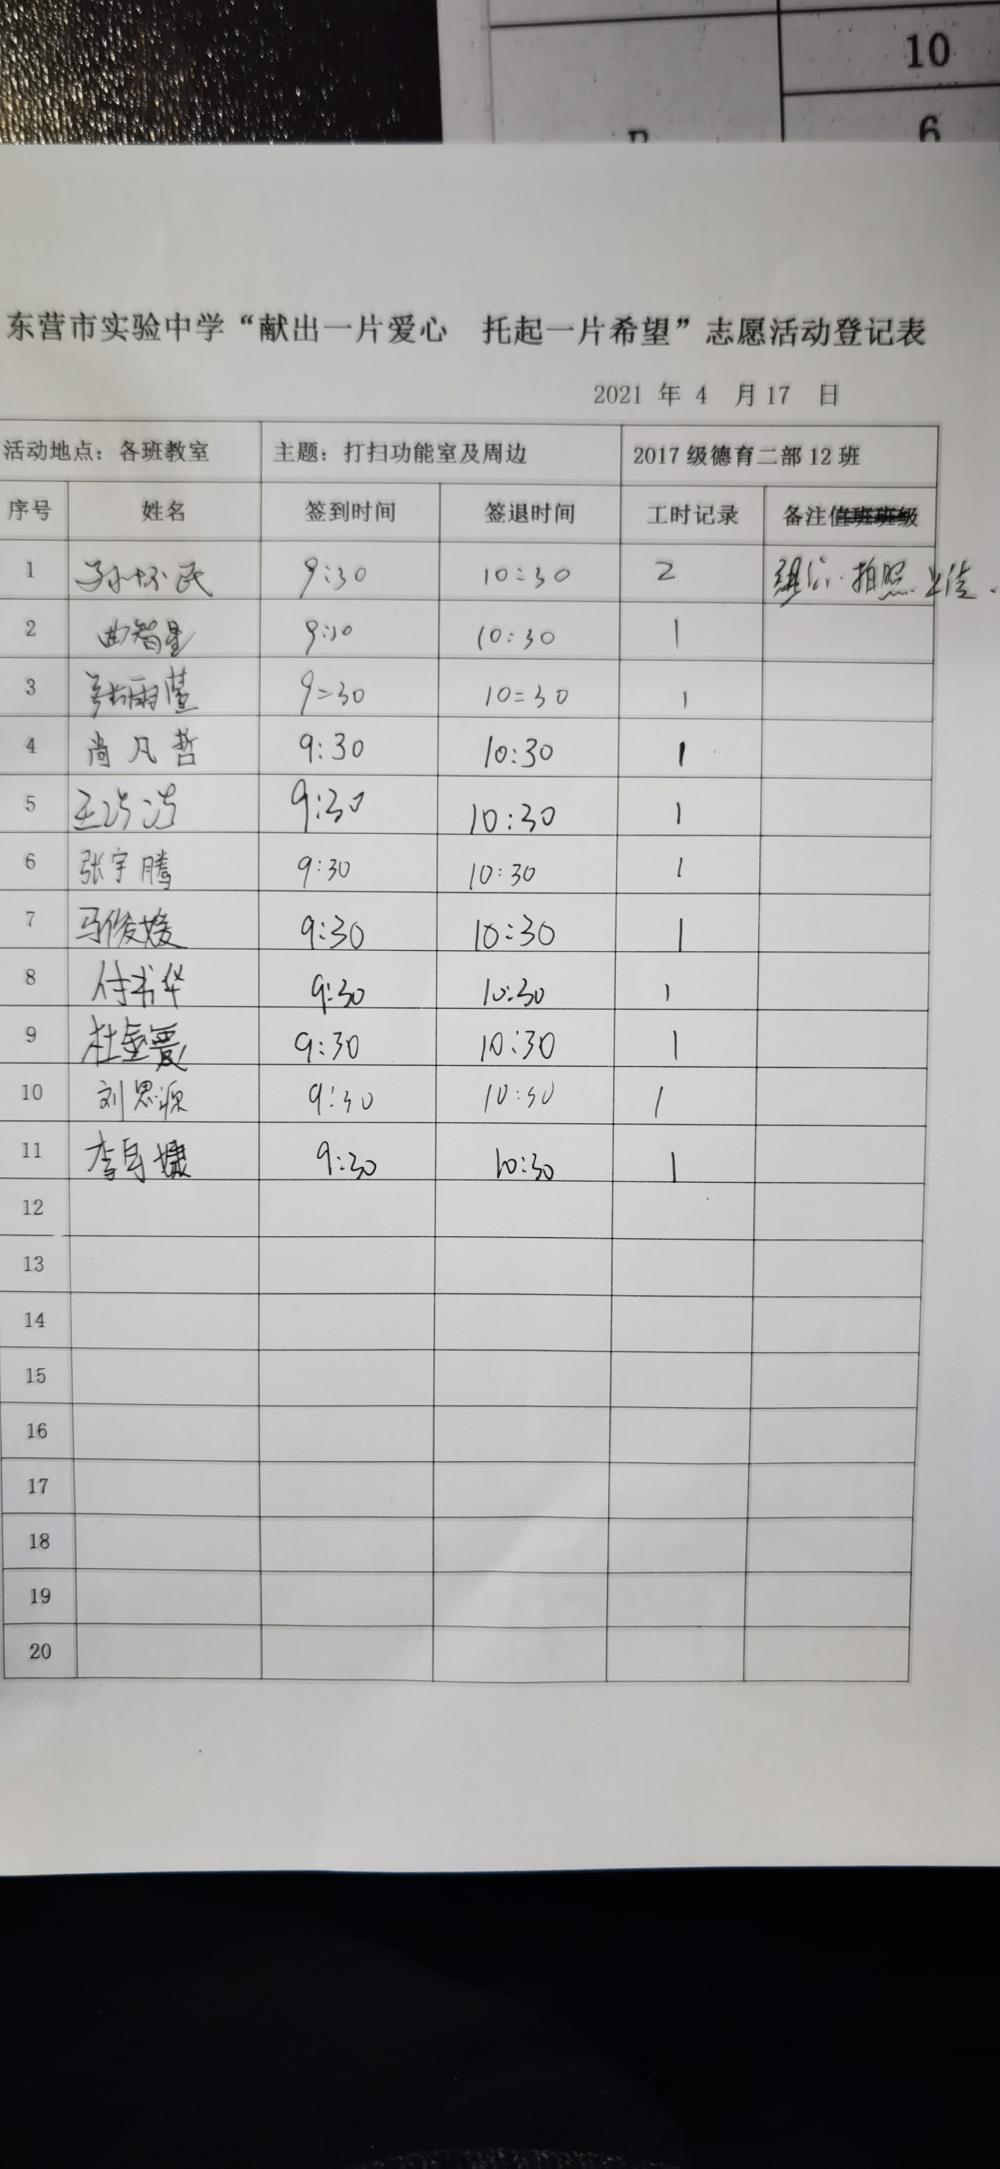 10
6
东营市实验中学“献出一片爱心 托起一片希望”志愿活动登记表
2021 年 4 月 17 日
活动地点：各班教室 主题：打扫功能室及周边 2017 级德育二部 12 班
序号 姓名 签到时间 签退时间 工时记录 备注值班班级
1 孙怀民 9:30 10:30 2 拍照
2 曲智星 9:30 10:30 1
3 张雨萱 9:30 10:30 1
4 尚凡哲 9:30 10:30 1
5 王 9:30 10:30 1
6 张宇腾 9:30 10:30 1
7 马俊媛 9:30 10:30 1
8 付书华 9:30 10:30 1
9 杜 9:30 10:30 1
10 刘思源 9:30 10:30 1
11 李 9:30 10:30 1
12
13
14
15
16
17
18
19
20